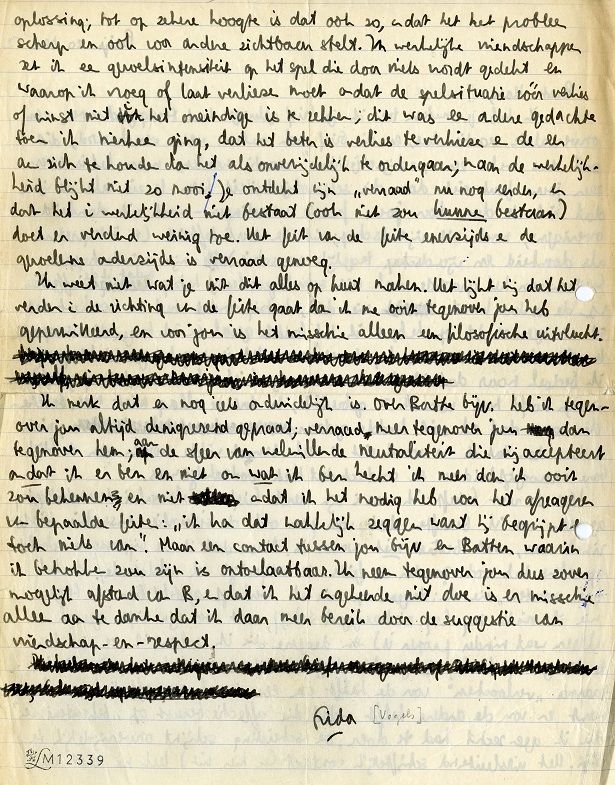 oplossing; tot op zekere hoogte is dat ook zo, omdat het het probleem
scherp en ook voor andere zichtbaar stelt. In werkelijke vriendschappen
zet ik een gevoelsintensiteit op het spel die door niets wordt gedekt en
waarop ik vroeg of laat verliezen moet omdat de spelsituatie vóór verlies
of winst niet tot het oneindige is te rekken; dit was een andere gedachte
toen ik hierheen ging, dat het beter is verlies te verkiezen en de eer
aan zich te houden dan het als onvermijdelijk te ondergaan; maar de werkelijk-
heid blijkt niet zo mooi. Je ontdekt mijn „verraad" nu nog eerder, en
dat het in werkelijkheid niet bestaat (ook niet zou kunnen bestaan)
doet er verder weinig toe. Het feit van de feiten enerzijds en de
gevoelens anderzijds is verraad genoeg.
Ik weet niet wat je uit dit alles op kunt maken. Het lijkt mij dat het
verder in de richting van de feiten gaat dan ik me ooit tegenover jou heb
gepermitteerd, en voor jou is het misschien alleen een filosofische uitvlucht.
Ik merk dat er nog iets onduidelijk is. Over Batten bijv. heb ik tegen-
over jou altijd denigrerend gepraat; verraad, meer tegenover jou dan
tegenover hem; aan de sfeer van welwillende neutraliteit die mij accepteert
omdat ik er ben en niet om wat ik ben hecht ik meer dan ik ooit
zou bekennen en niet omdat ik het nodig heb voor het afreageren
van bepaalde feiten: „ik kan dat makkelijk zeggen want hij begrijpt er
toch niets van". Maar een contact tussen jou bijv. en Batten waarin
ik betrokken zou zijn is ontoelaatbaar. Ik neem tegenover jou dus zover
mogelijk afstand van B, en dat ik het omgekeerde niet doe is er misschien
alleen aan te danken dat ik daar meer bereik door de suggestie van
vriendschap-en-respect.
Frida [Vogels]
LM M12339